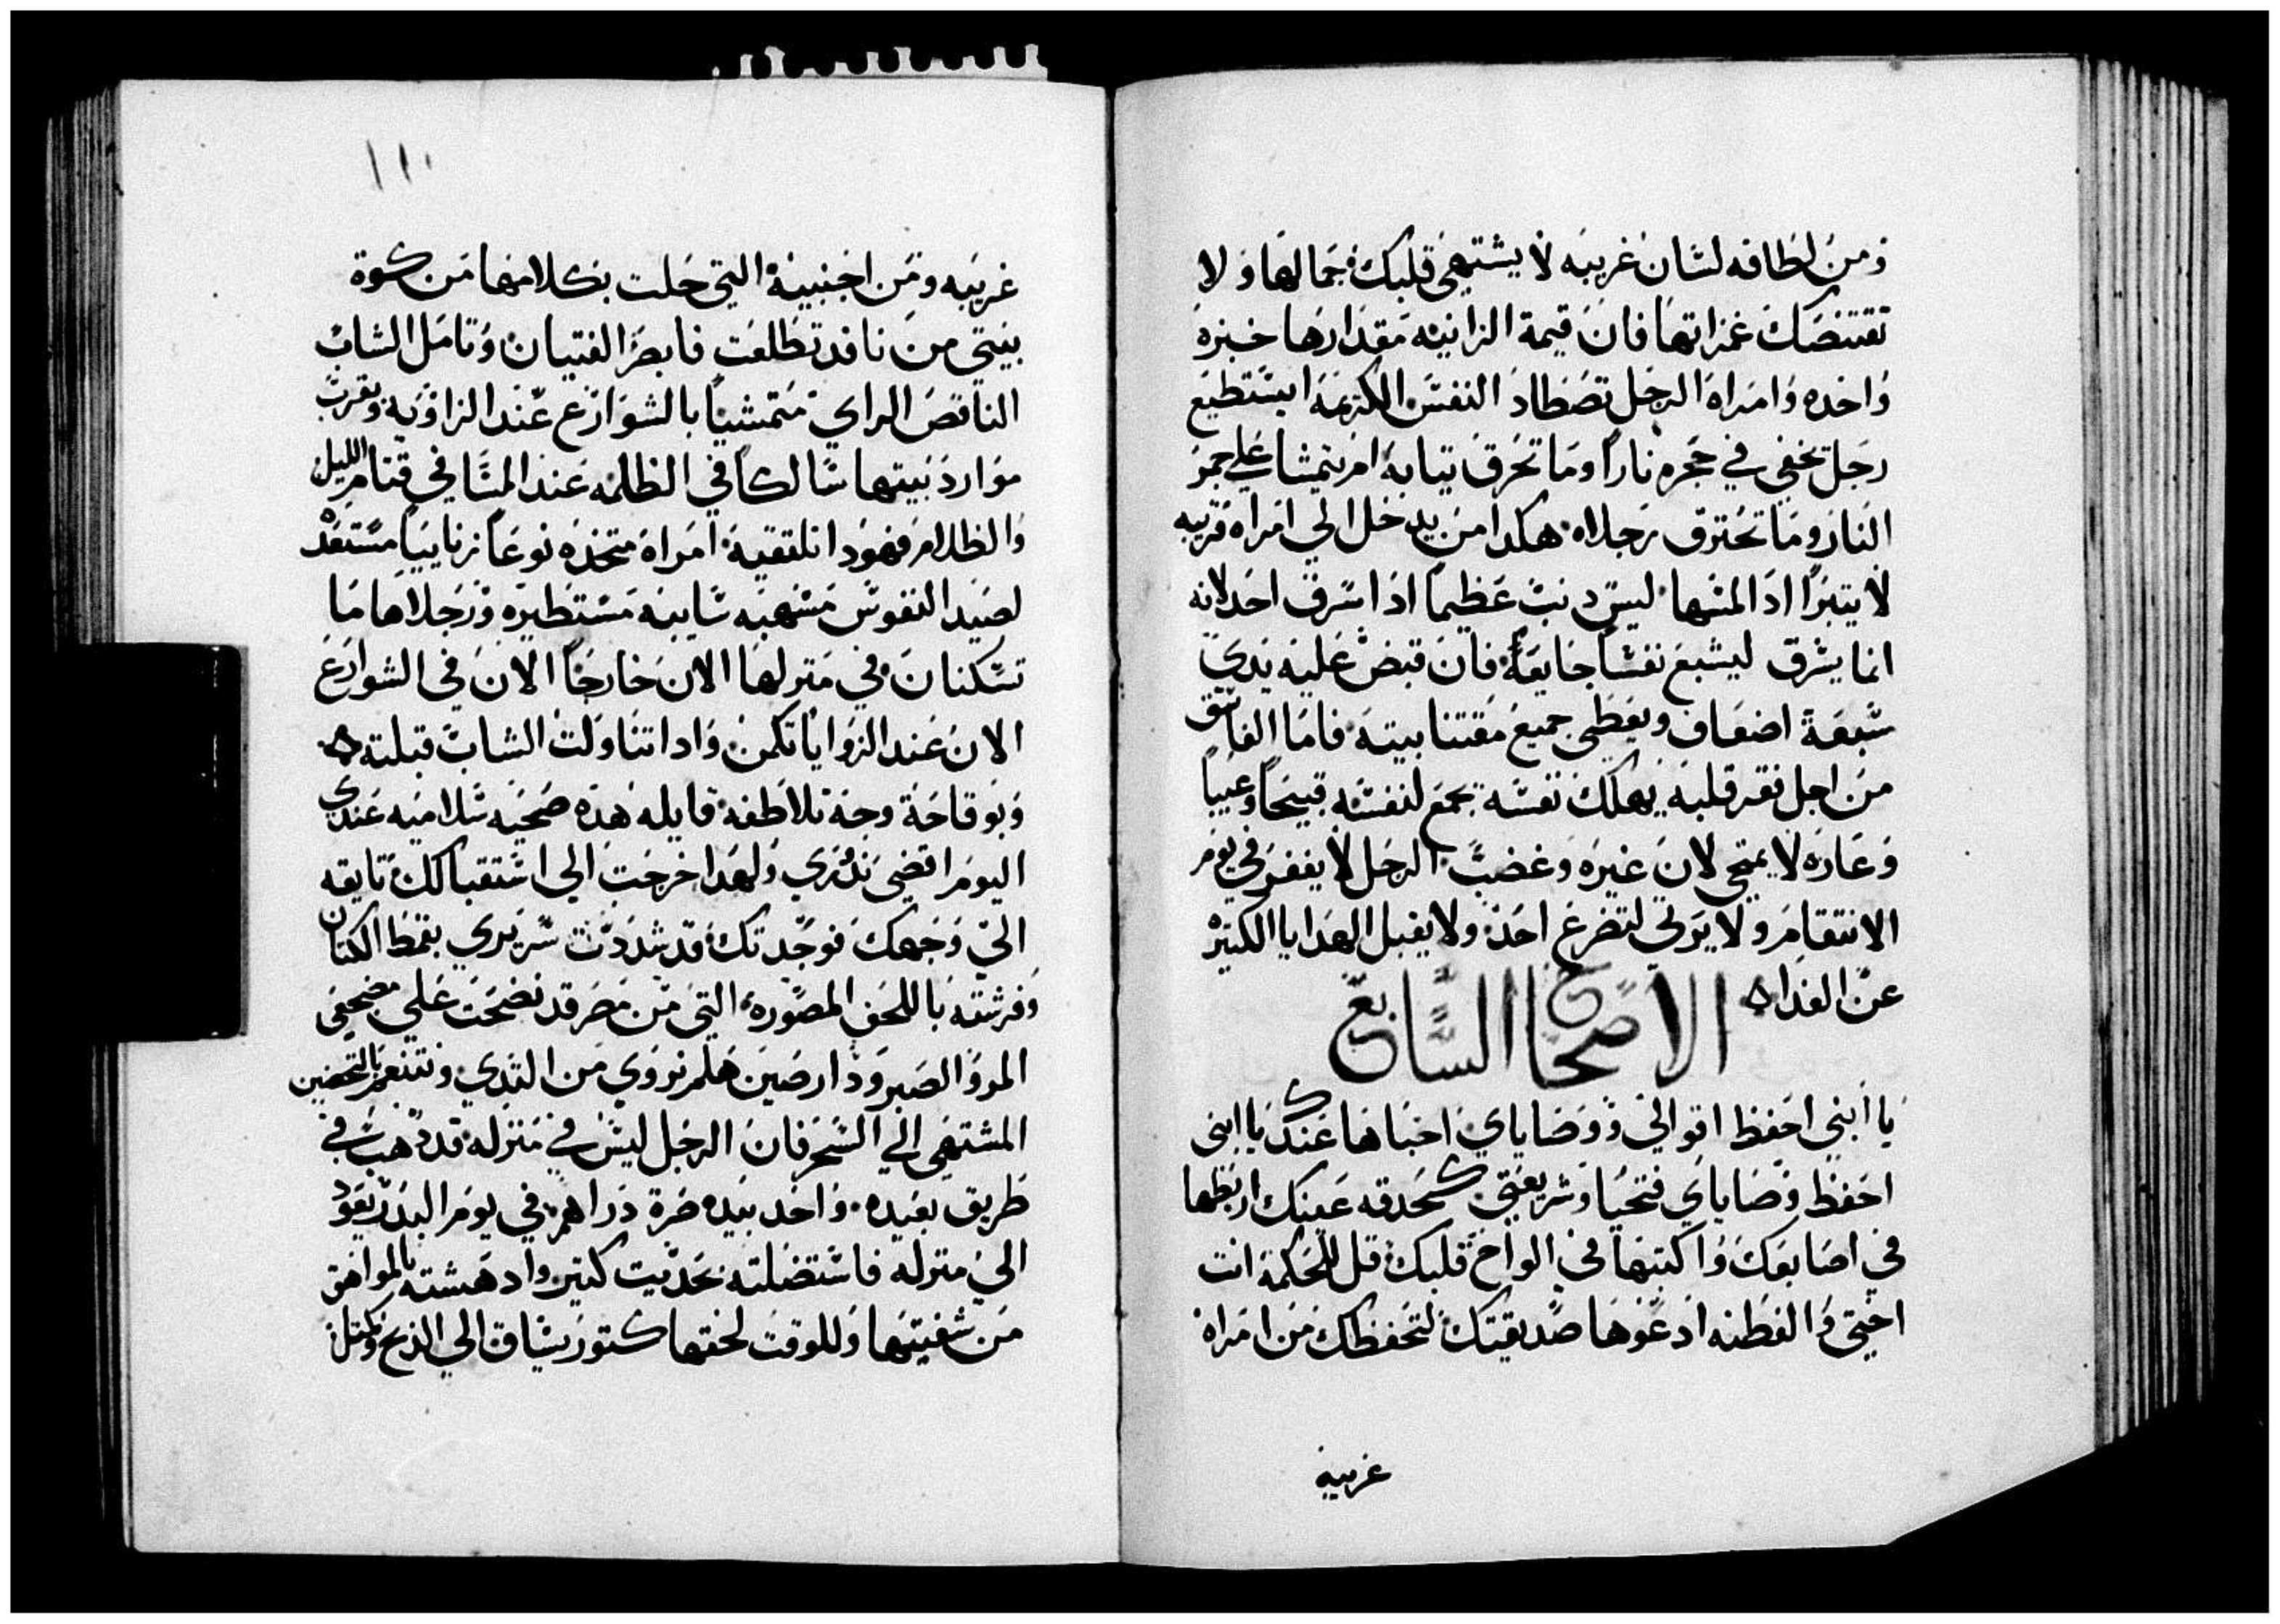 ومن لطافه لسان غريبه لا يشتهي قلبك جمالها ولا
تقتنصك غمزاتها فان قيمة الزانيه مقدارها خبزه
واحده وامراه الرجل تصطاد النفس الكريمه ايستطيع
رجل يخفي في حجره ناراً وما تحرق تيابه ام يتمشا علي جمر
النار وما تحترق رجلاه هكدا من يدخل الي امراه قريبه
لا يتبرا ادا لمسها ليس دنب عظيماً ادا سرق احد لانه
انما يسرق ليشبع نفساً جايعةً فان قبض عليه يدي
سبعة اضعاف ويعطي جميع مقتنا بيته فاما الفاسق
من اجل فقر قلبه يهلك نفسه يجمع لنفسه قبيحاً وعيباً
وعاره لا يمتحي لان غيره وغضب الرجل لا يغفر في يوم
الانتقام ولا يوتي لتضرع احد ولا يقبل الهدايا الكتير
عن الفدا ه
الاصحاح السابع
يا ابني احفظ اقوالي ووصاياي اخباها عندك يا ابني
احفظ وصاياي فتحيا وشريعتي كحدقه عينك اربطها
في اصابعك واكتبها في الواح قلبك قل للحكمة انت
اختي والفطنه ادعوها صديقتك لتحفظك من امراه
غريبه
١١٠
غريبه ومن اجنبية التي حلت بكلامها من كوة
بيتي من نافد تطلعت فابصر الفتيان وتامل الشاب
الناقص الراي متمشياً بالشوارع عند الزاويه وبقرب
موارد بيتها سالكاً في الظلمه عند المسا في قتام الليل
والظلام فهودا تلتقيه امراة متخذه نوعاً زناييياً مستعد
لصيد النفوس مسهبه سايبه مستطيره ورجلاها ما
تسكنان في منزلها الان خارجاً الان في الشوارع
الان عند الزوايا تكمن وادا تناولت الشاب قبلته ه
وبوقاحة وجة تلاطفه قايله هذه ضحيه سلاميه عندي
اليوم اقضي نذري ولهدا خرجت الي استقبالك تايقه
الي وجهك فوجدتك قد شددت سريري بقمط الكتان
وفرشته باللحف المصوره التي من مصر قد نضحت علي مضجعي
المر والصبر ودارصين هلم نروي من التدي ونتنعم بالتحضين
المشتهي الي السحر فان الرجل ليس في منزله قد دهب في
طريق بعيده واخد بيده صرة دراهم في يوم البدر يعود
الي منزله فاستضلته بحديت كتير وادهشته بالمواهق
من شفيتها وللوقت لحقها كتور يساق الي الذبح وكمتل